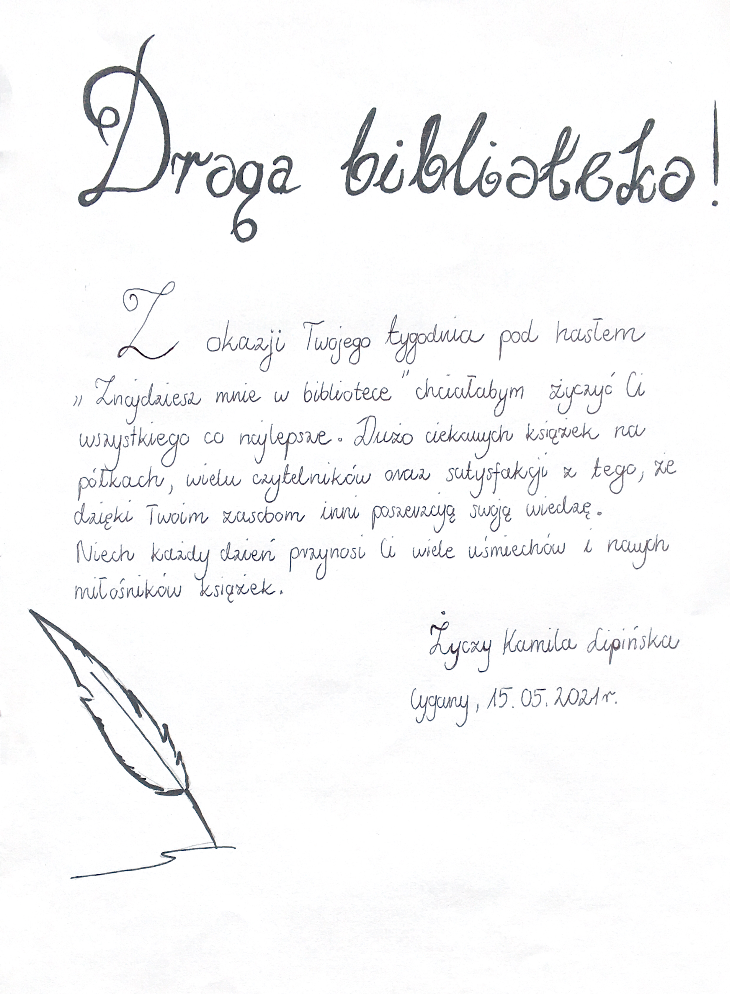 Droga biblioteko!
Z okazji Twojego tygodnia pod hasłem
„Znajdziesz mnie w bibliotece" chciałabym życzyć Ci
wszystkiego co najlepsze. Dużo ciekawych książek na
półkach, wielu czytelników oraz satysfakcji z tego, że
dzięki Twoim zasobom inni poszerzają swoją wiedzę.
Niech każdy dzień przynosi Ci wiele uśmiechów i nowych
miłośników książek.
Życzy Kamila Lipińska
Cygany, 15.05.2021r.